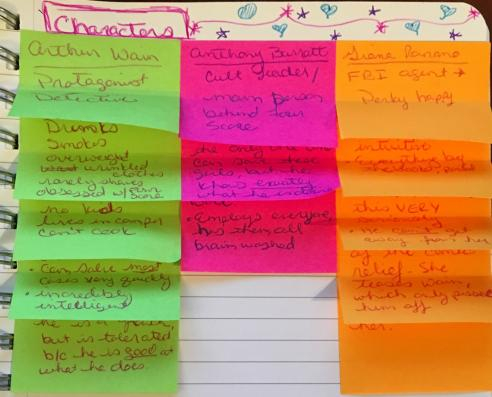 Characters
Arthur Wain
Protagonist
Detective
Drinks
Smokes
overweight
wrinkled clothes
rarely shaves
obsessed w/
no kids
lives in camper
can't cook
• Can solve most
cases very quickly
• incredibly
intelligent
he is a
but is tolerated
b/c he is good at
what he does.
Anthony Barratt
Cult Leader/
main person
behind four
Score
she only one
can save these
girls, but he
knows exactly
what he is doing
• Employs everyone,
has them all
brain washed
FBI agent →
Perky happy
intuitive
this VERY
seriously
• He can't get
away from her
comic
relief. She
teases Wain,
which only pisses
him off
her.